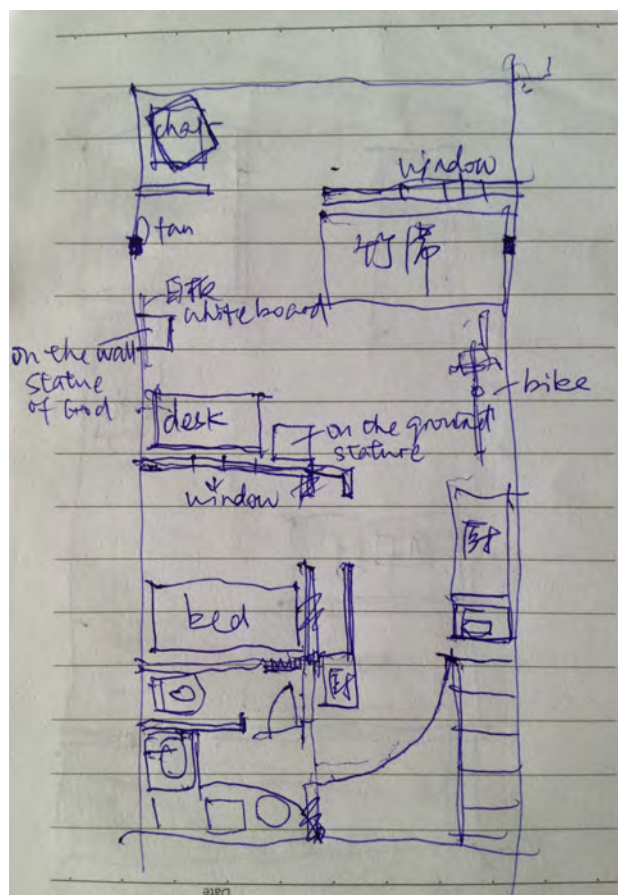 chair
window
fan
竹席
白板
whiteboard
on the wall
statue
of God
bike
desk
on the ground
stature
window
厨
bed
厨
Date